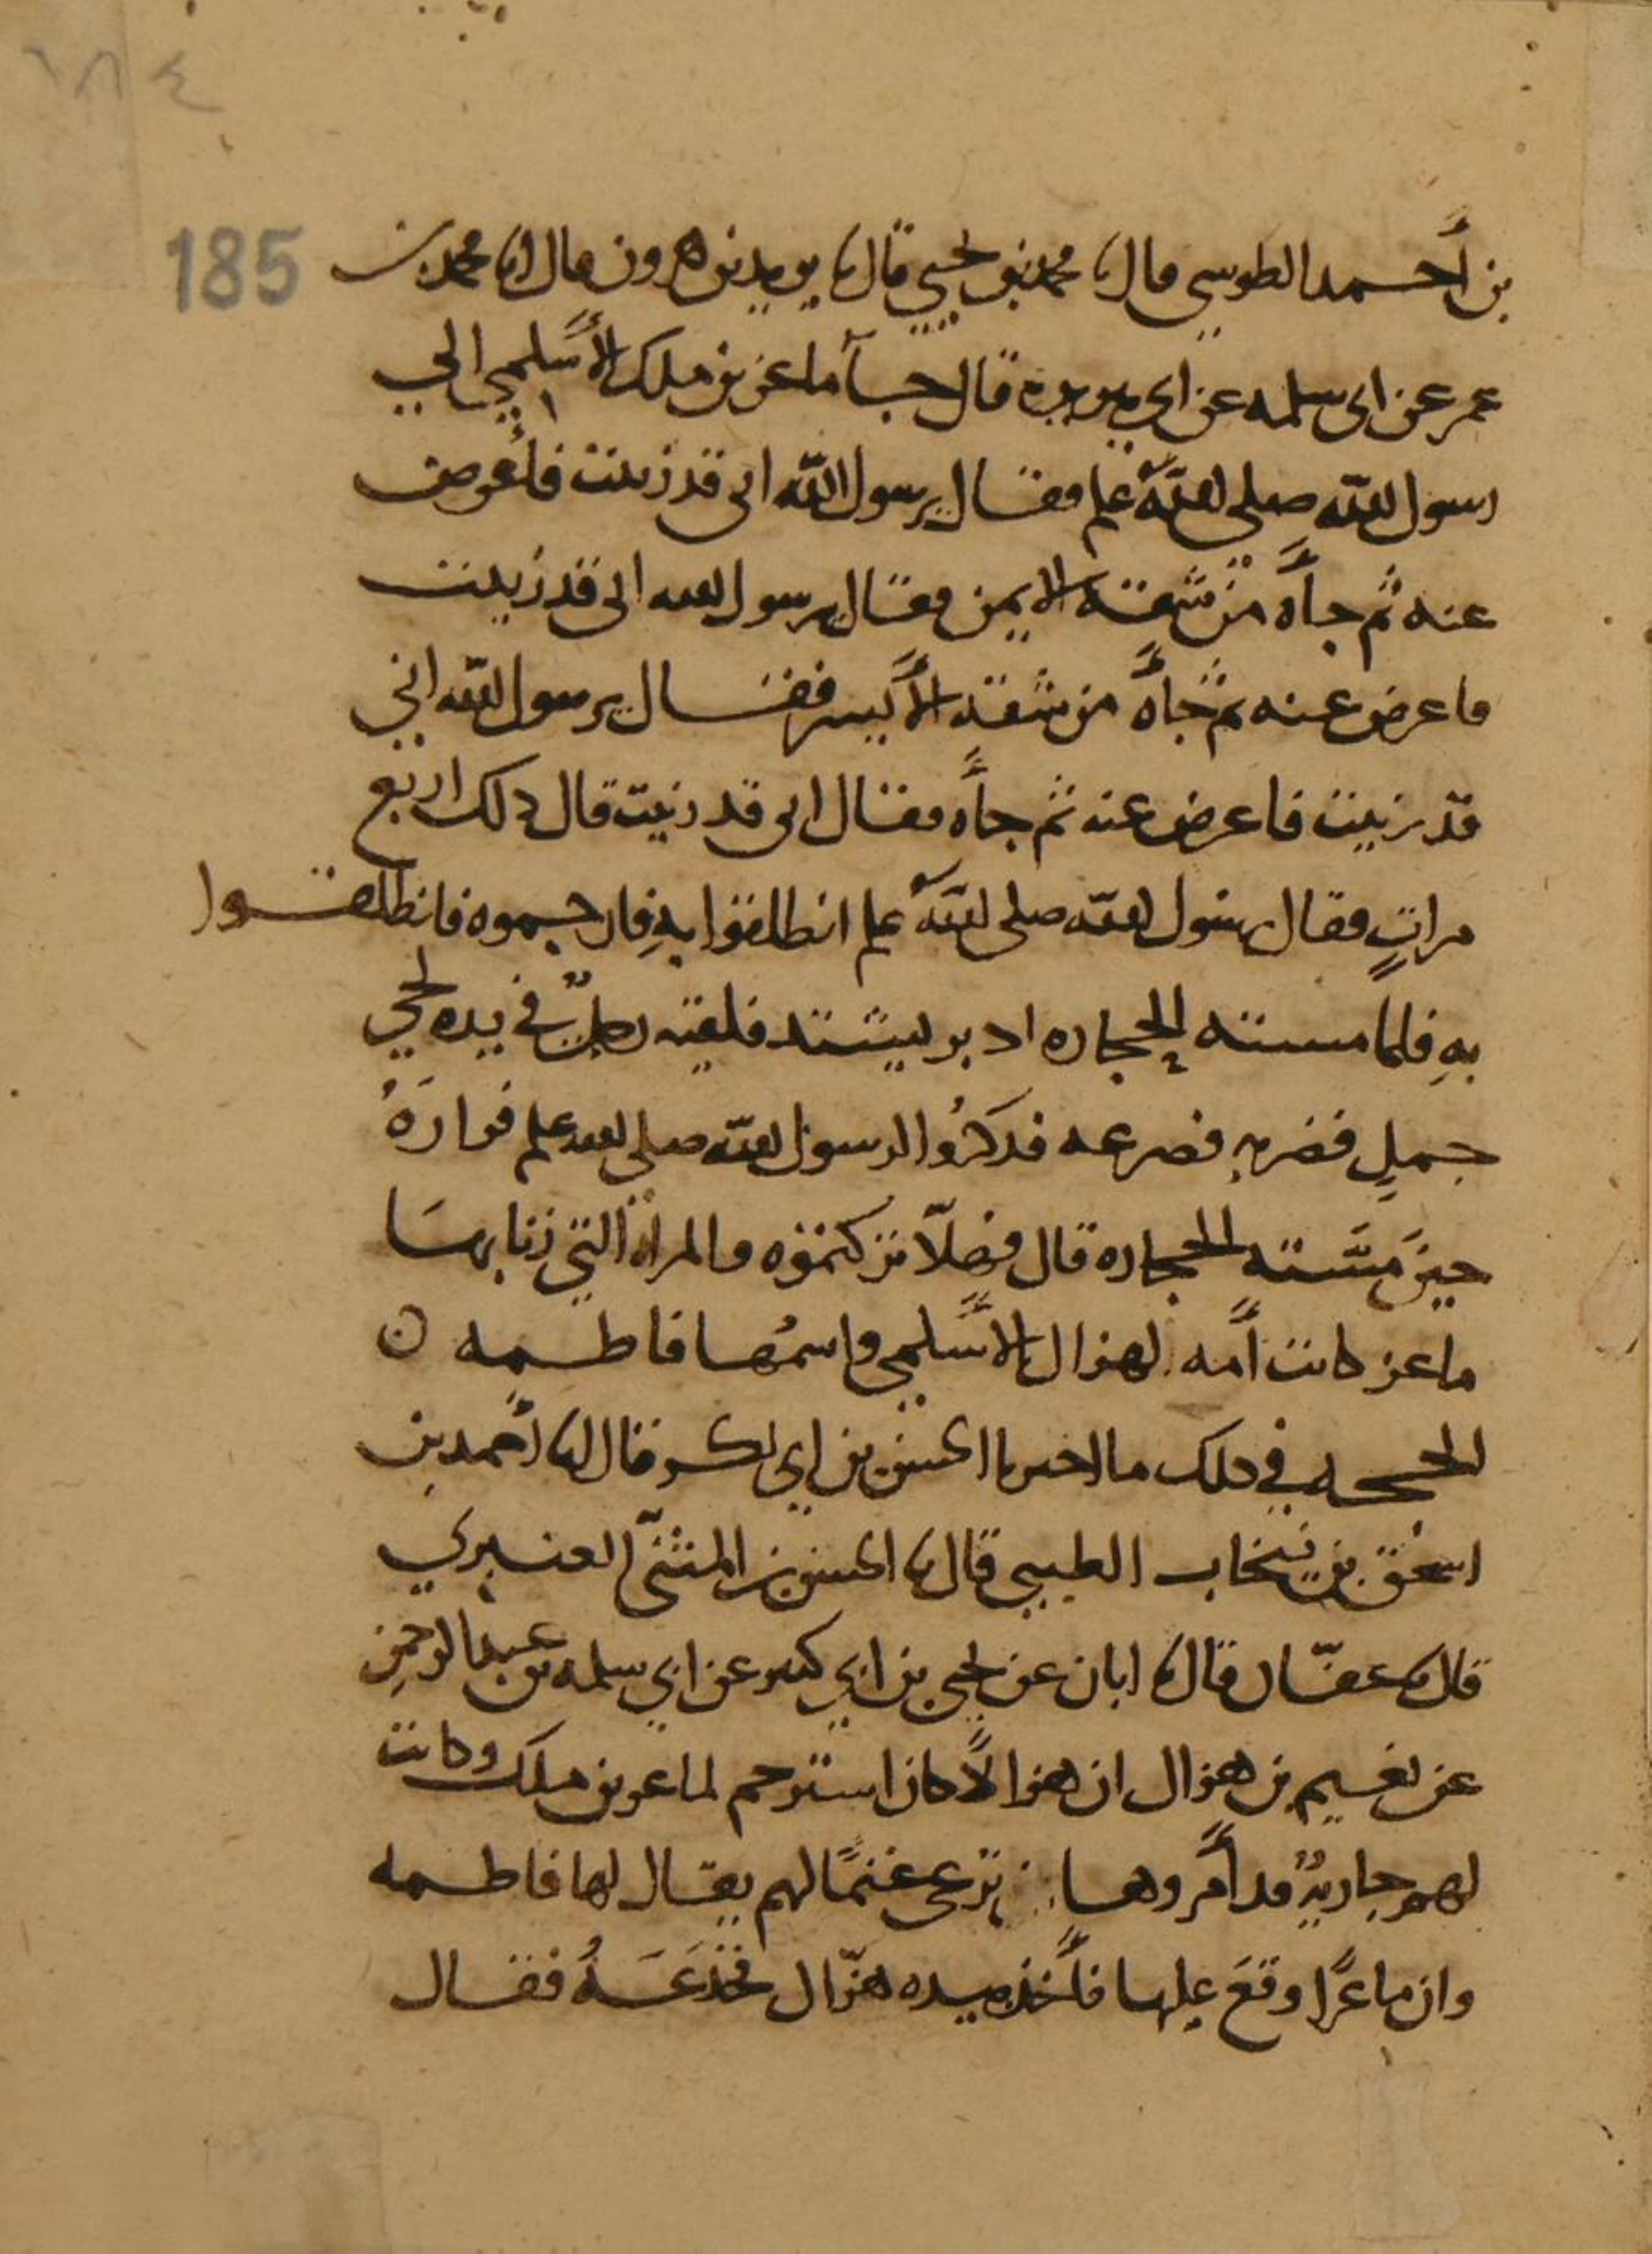 ١٨٤
185
بن أحمد الطوسي قال نا محمد بن يحيى قال نا يزيد بن هرون قال انا محمد بن
عمر عن ابي سلمه عن ابي هريرة قال جآ ماعز بن ملك الأسلمي الي
رسول الله صلى الله علم فقال يرسول الله اني قد زنيت فأعرض
عنه ثم جأه من شقه الايمن فقال يرسول الله اني قد زنيت
فاعرض عنه ثم جأه من شقه الأيسر فقال يرسول الله اني
قد زنيت فاعرض عنه ثم جأه فقال اني قد زنيت قال ذلك اربع
مراتٍ فقال رسول الله صلى الله علم انطلقوا بهِ فارجموه فانطلقوا
بهِ فلما مسته الحجاره ادبر يشتد فلقيه رجلٌ في يده لحي
جملٍ فضربه فصرعه فذكرُوا لرسول الله صلى الله علم فرارَهُ
حين مَسَّته الحجاره قال فهلاّ تركتموه والمراه التي زنا بها
ماعز كانت أمه لهزال الأسلمي واسمُها فاطمه ن
الحجه في ذلك ما اخبرنا الحسن بن ابي بكر قال انا أحمد بن
اسحٰق بن نيخاب الطيبي قال نا الحسن بن المثنّى العنبري
قال نا عفّان قال نا ابان عن يحيى بن ابي كثير عن ابي سلمه بن عبد الرحمن
عن نعيم بن هزال ان هزالاً كان استرجم لماعز بن ملك وكانت
لهم جاريةٌ قد أمروها ترعى غنمًا لهم يقال لها فاطمه
وان ماعزًا وقعَ عليها فأخذ بيده هزّال فخدَعَهُ فقال